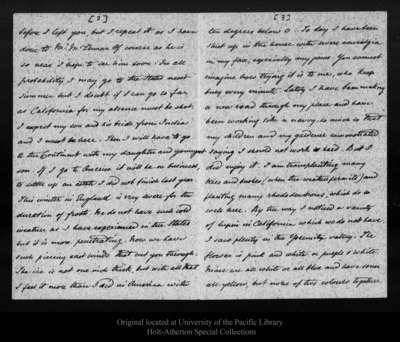 [2]
before I left you, but I repeat it as I have
done to Mr. McLennan. Of course as he is
so near I hope to see him soon. In all
probability I may go to the States next
summer but I doubt if I can go so far
as California for my absence must be short.
I expect my son and his bride from India
and I must be here. Then I will have to go
to the Continent with my daughter and youngest
son. If I go to America it will be on business,
to settle up an estate I did not finish last year.
This winter in England is very severe for the
duration of frost. We do not have such cold
weather as I have experienced in the States
but it is more penetrating. Now we have
such piercing east winds that cut you through.
The ice is not one inch thick, but with all that
I feel it more than I did in America with
[3]
ten degrees below 0. To day I have been
shut up in the house with severe neuralgia
in my face, especially my jaws. You cannot
imagine how trying it is to me, who keep
busy every minute. Lately I have been making
a new road through my place and have
been working like a navvy, so much so that
my children and my gardener remonstrated
saying I should not work so hard. But I
did enjoy it. I am transplanting many
trees and bushes (when the weather permits) and
planting many rhododendrons, which do so
well here. By the way I noticed a variety
of lupin in California which we do not have.
I saw plenty in the Yosemity valley. The
flower is pink and white or purple & white.
Mine are all white or all blue and have some
all yellow, but none of two colours together.
Original located at University of the Pacific Library
Holt-Atherton Special Collections